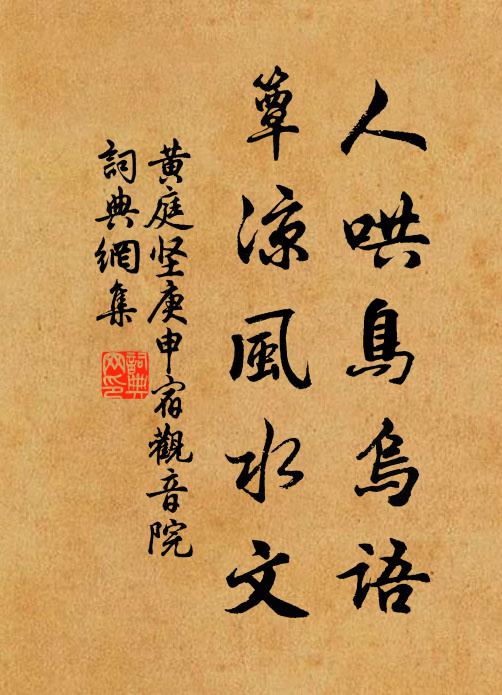 人哄鳥烏語
簟涼風水文
黄庭坚庚申宿觀音院
詞典網集